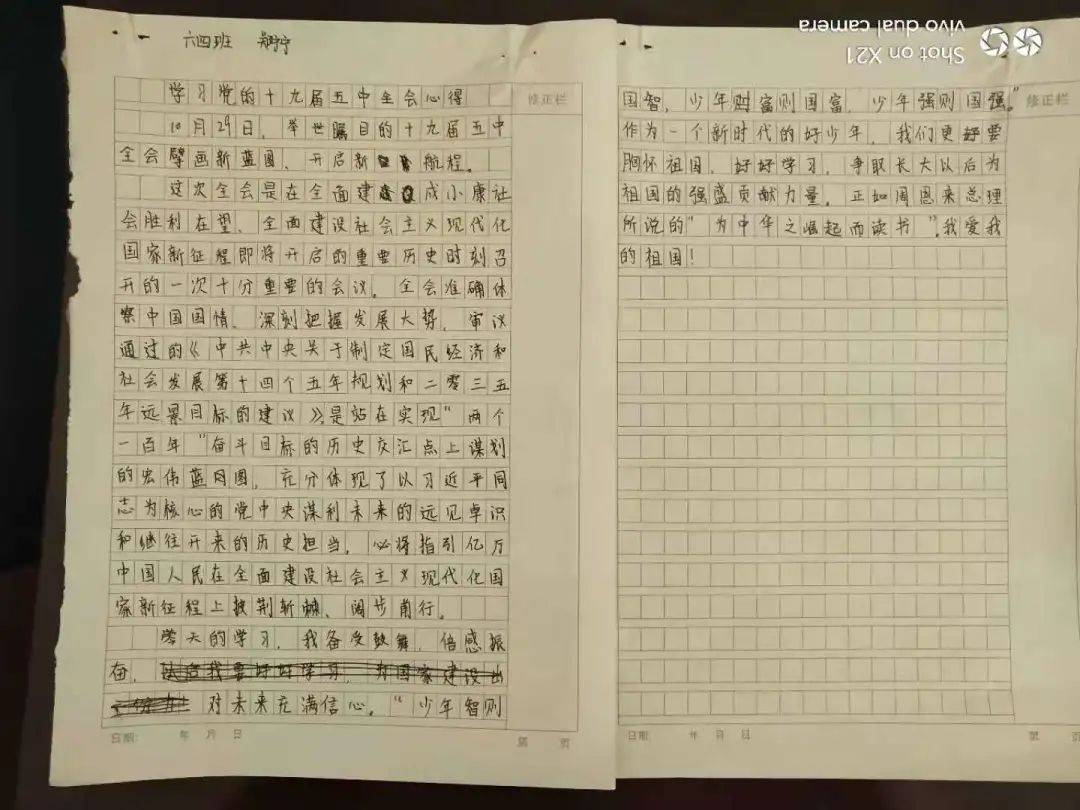 六四班 郑宁
学习党的十九届五中全会心得
10月29日，举世瞩目的十九届五中
全会擘画新蓝图、开启新航程。
这次全会是在全面建成小康社
会胜利在望、全面建设社会主义现代化
国家新征程即将开启的重要历史时刻召
开的一次十分重要的会议。全会准确体
察中国国情、深刻把握发展大势，审议
通过的《中共中央关于制定国民经济和
社会发展第十四个五年规划和二零三五
年远景目标的建议》是站在实现“两个
一百年“奋斗目标的历史交汇点上谋划
的宏伟蓝网图，充分体现了以习近平同
志为核心的党中央谋利未来的远见卓识
和继往开来的历史担当，必将指引亿万
中国人民在全面建设社会主义现代化国
家新征程上披荆斩棘、阔步前行。
天的学习，我备受鼓舞，倍感振
奋，以后我要好好学习，为国家建设出
对未来充满信心。“少年智则
日期： 年 月 日
第 页
修正栏
国智，少年财富则国富，少年强则国强。”
作为一个新时代的好少年，我们更好要
胸怀祖国，好好学习，争取长大以后为
祖国的强盛贡献力量。正如周恩来总理
所说的“为中华之崛起而读书”。我爱我
的祖国！
日期： 年 月 日
第 页
修正栏
Shot on X21
vivo dual camera